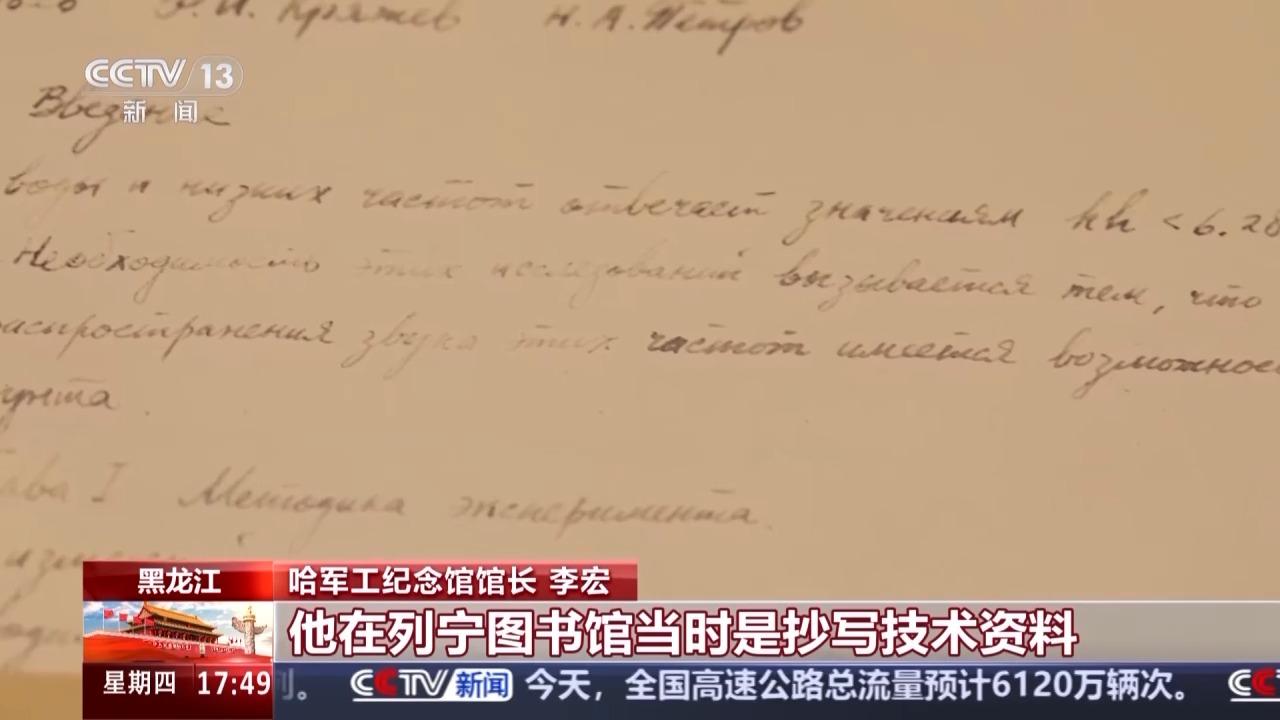 Н. А. Петров
CCTV 13
新闻
Введение
воды и низких частот отвечает значениям kh < 6.28
Необходимость этих исследований вызывается тем, что
распространения звука этих частот имеется возможнос
I Методика эксперимента.
黑龙江
哈军工纪念馆馆长 李宏
他在列宁图书馆当时是抄写技术资料
星期四 17:49
列。 CCTV新闻 今天，全国高速公路总流量预计6120万辆次。